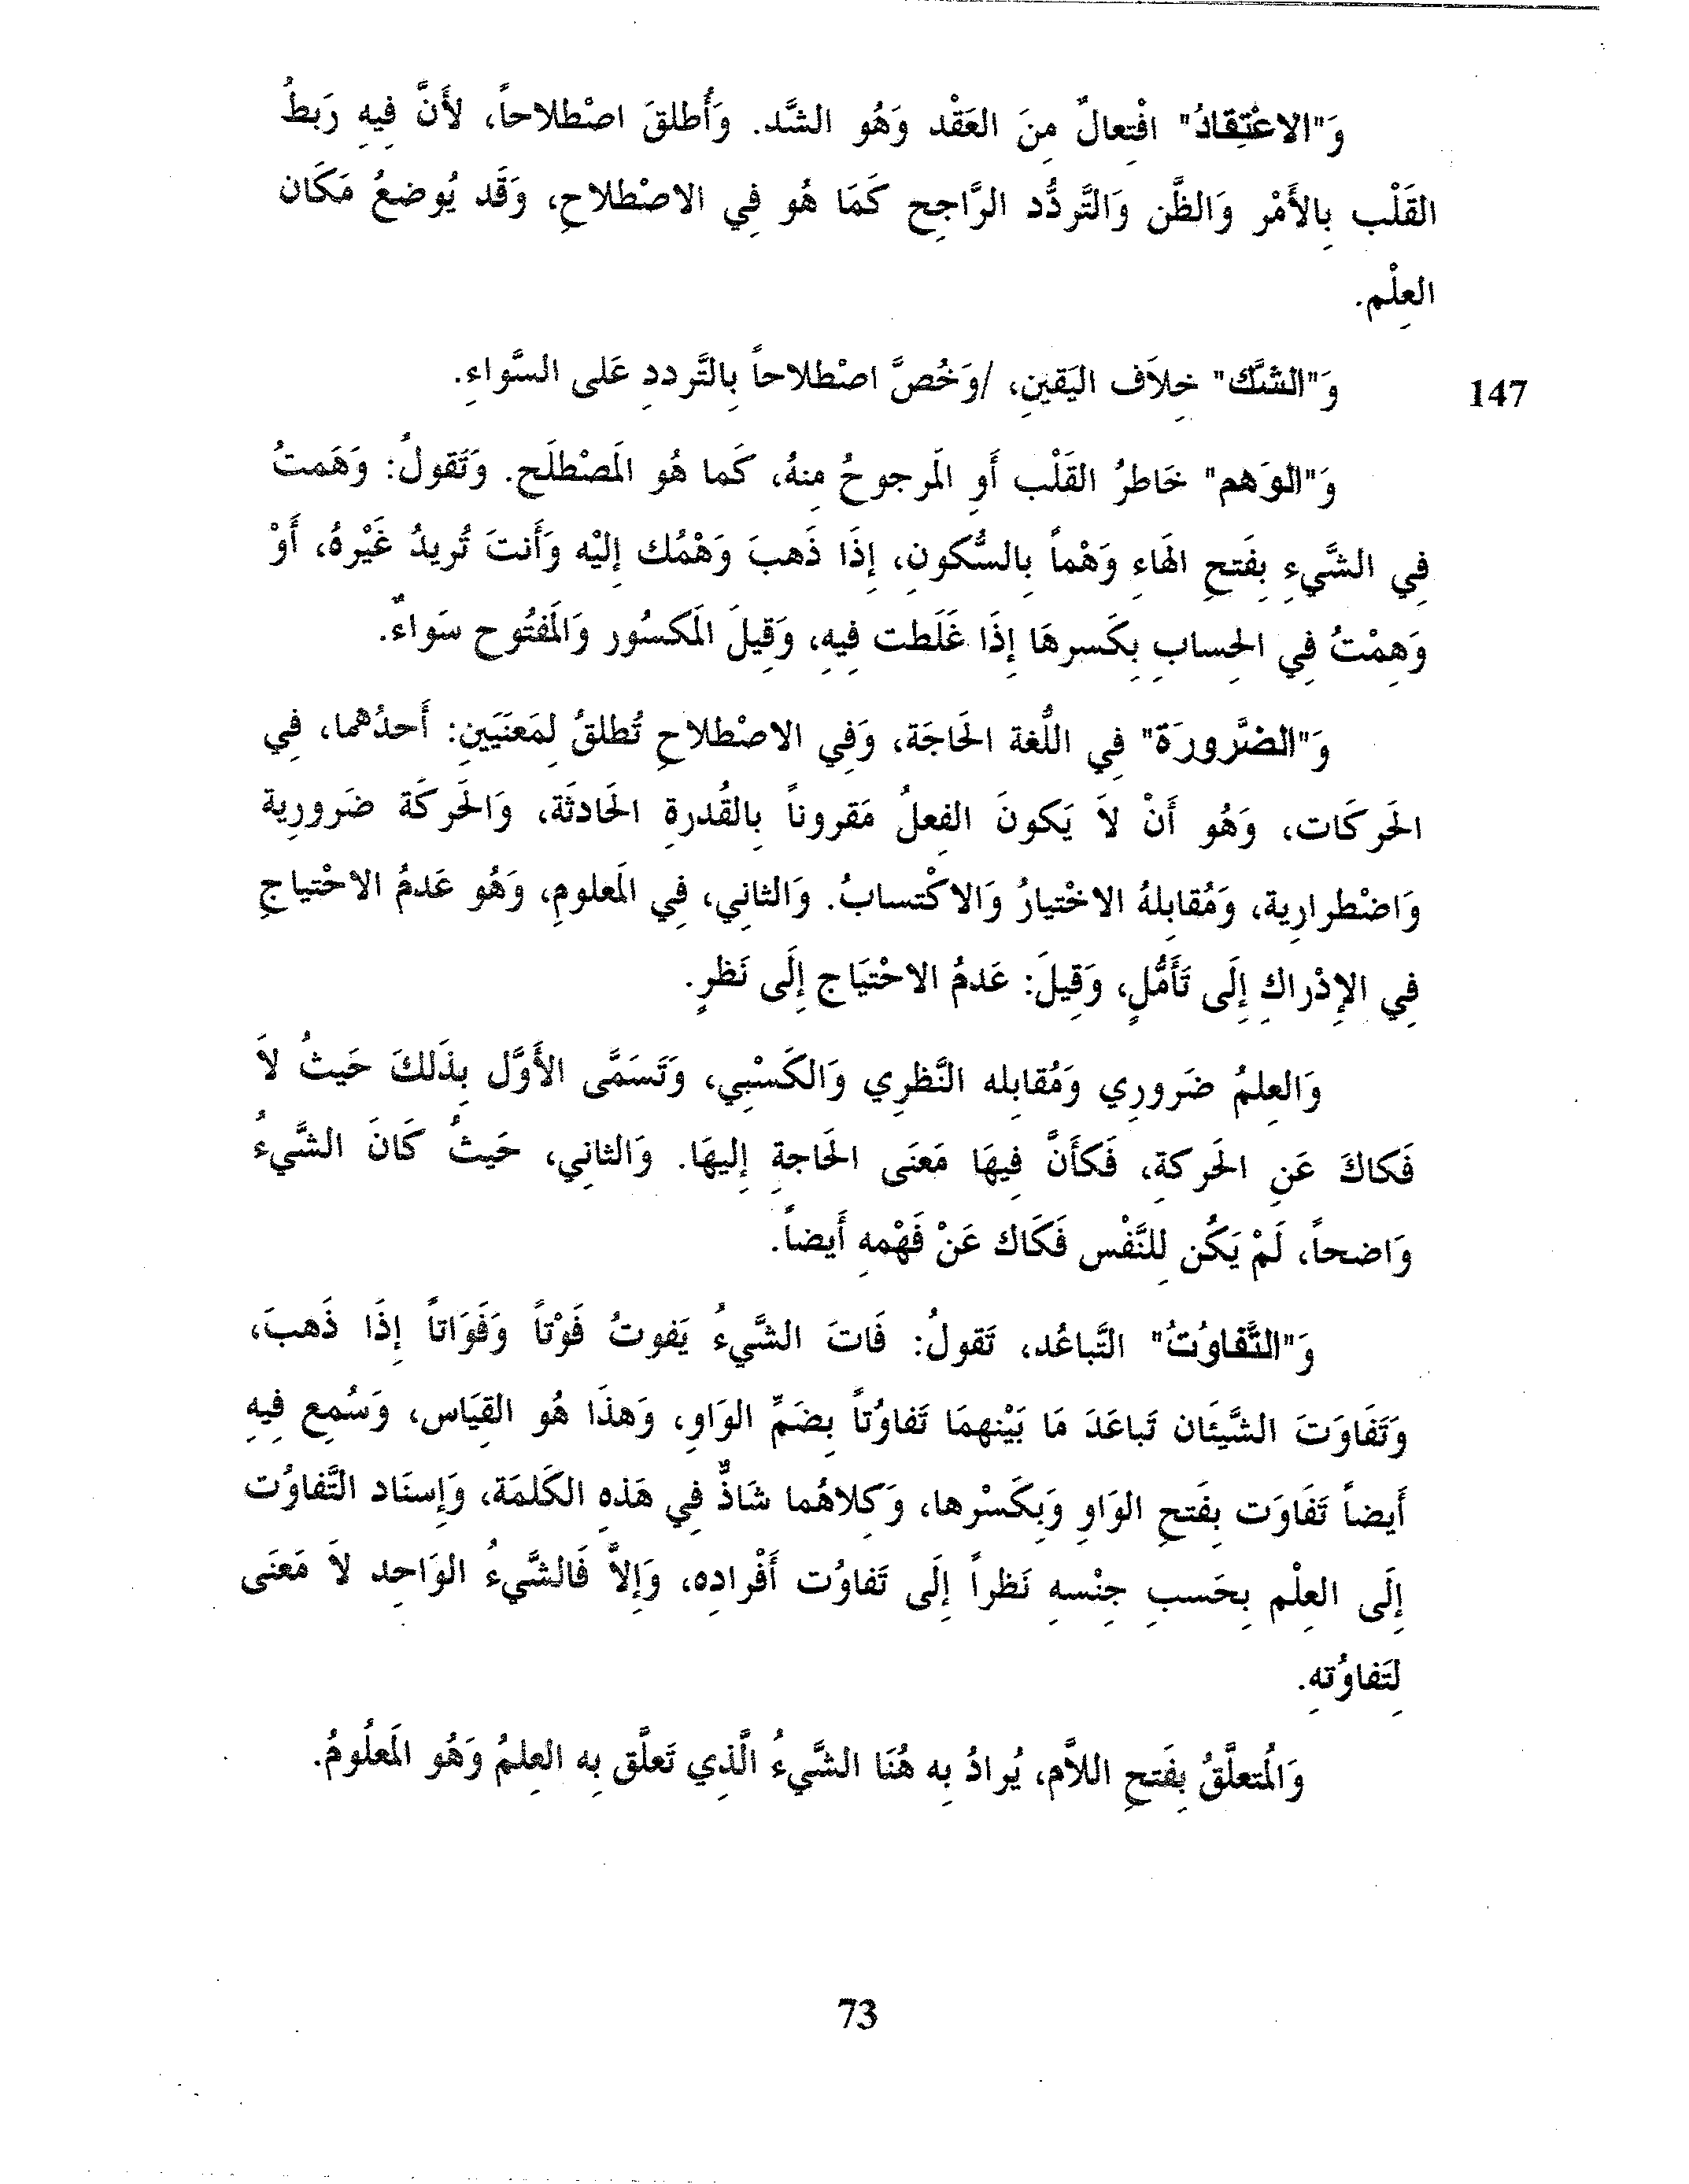 وَ"الاعْتِقادُ" افْتِعالٌ مِنَ العَقْد وَهُو الشَّد. وَأُطلقَ اصْطلاحاً، لأَنَّ فِيهِ رَبطُ
القَلْب بِالأَمْر وَالظَّن وَالتَّردُّد الرَّاجِح كَمَا هُو فِي الاصْطلاحِ، وَقَد يُوضعُ مَكَان
العِلْم.
وَ"الشَّك" خِلاَف اليَقينِ، /وَخُصَّ اصْطلاحاً بِالتَّرددِ عَلى السَّواءِ.
147
وَ"الوَهم" خَاطرُ القَلْب أَوِ المَرجوحُ مِنهُ، كَما هُو المَصْطلَح. وَتَقولُ: وَهَمتُ
فِي الشَّيءِ بِفَتحِ الهَاءِ وَهْماً بِالسُّكونِ، إِذَا ذَهبَ وَهْمُك إِليْه وَأَنتَ تُريدُ غَيْرهُ، أَوْ
وَهِمْتُ فِي الحِسابِ بِكَسرِهَا إِذَا غَلَطت فِيهِ، وَقِيلَ المَكسُور وَالمَفتُوح سَواءٌ.
وَ"الضَّرورَة" فِي اللُّغة الحَاجَة، وَفِي الاصْطلاحِ تُطلقُ لِمَعنَيَينِ: أَحدُهما، فِي
الحَركَات، وَهُو أَنْ لاَ يَكونَ الفِعلُ مَقروناً بِالقُدرةِ الحَادثَة، وَالحَركَة ضَرورِية
وَاضْطرارِية، وَمُقابِلهُ الاخْتيارُ وَالاكْتسابُ. وَالثانِي، فِي المَعلومِ، وَهُو عَدمُ الاحْتياجِ
فِي الإِدْراكِ إِلَى تَأَمُّلٍ، وَقِيلَ: عَدمُ الاحْتيَاج إِلَى نَظرٍ.
وَالعِلمُ ضَرورِي وَمُقابِله النَّظرِي وَالكَسْبِي، وَتَسَمَّى الأَوَّل بِذَلكَ حَيثُ لاَ
فَكاكَ عَنِ الحَركةِ، فَكأَنَّ فِيهَا مَعنَى الحَاجةِ إِليهَا. وَالثانِي، حَيثُ كَانَ الشَّيءُ
وَاضحاً، لَمْ يَكُن لِلنَّفْس فَكَاك عَنْ فَهْمهِ أَيضاً.
وَ"التَّفاوُتُ" التَّباعُد، تَقولُ: فَاتَ الشَّيءُ يَفوتُ فَوْتاً وَفَوَاتاً إِذَا ذَهبَ،
وَتَفَاوَتَ الشَّيئَان تَباعَدَ مَا بَيْنهمَا تَفاوُتاً بِضَمِّ الوَاوِ، وَهذَا هُو القِيَاس، وَسُمِع فِيهِ
أَيضاً تَفَاوَت بِفَتحِ الوَاوِ وَبِكَسْرها، وَكِلاهُما شَاذٌّ فِي هَذهِ الكَلمَة، وَإِسنَاد التَّفاوُت
إِلَى العِلْم بِحَسبِ جِنْسهِ نَظراً إِلَى تَفاوُت أَفْراده، وَإِلاَّ فَالشَّيءُ الوَاحِد لاَ مَعنَى
لِتَفاوُتهِ.
وَالمُتعلَّقُ بِفَتحِ اللاَّم، يُرادُ بِه هُنَا الشَّيءُ الَّذِي تَعلَّق بِه العِلمُ وَهُو المَعلُومُ.
73